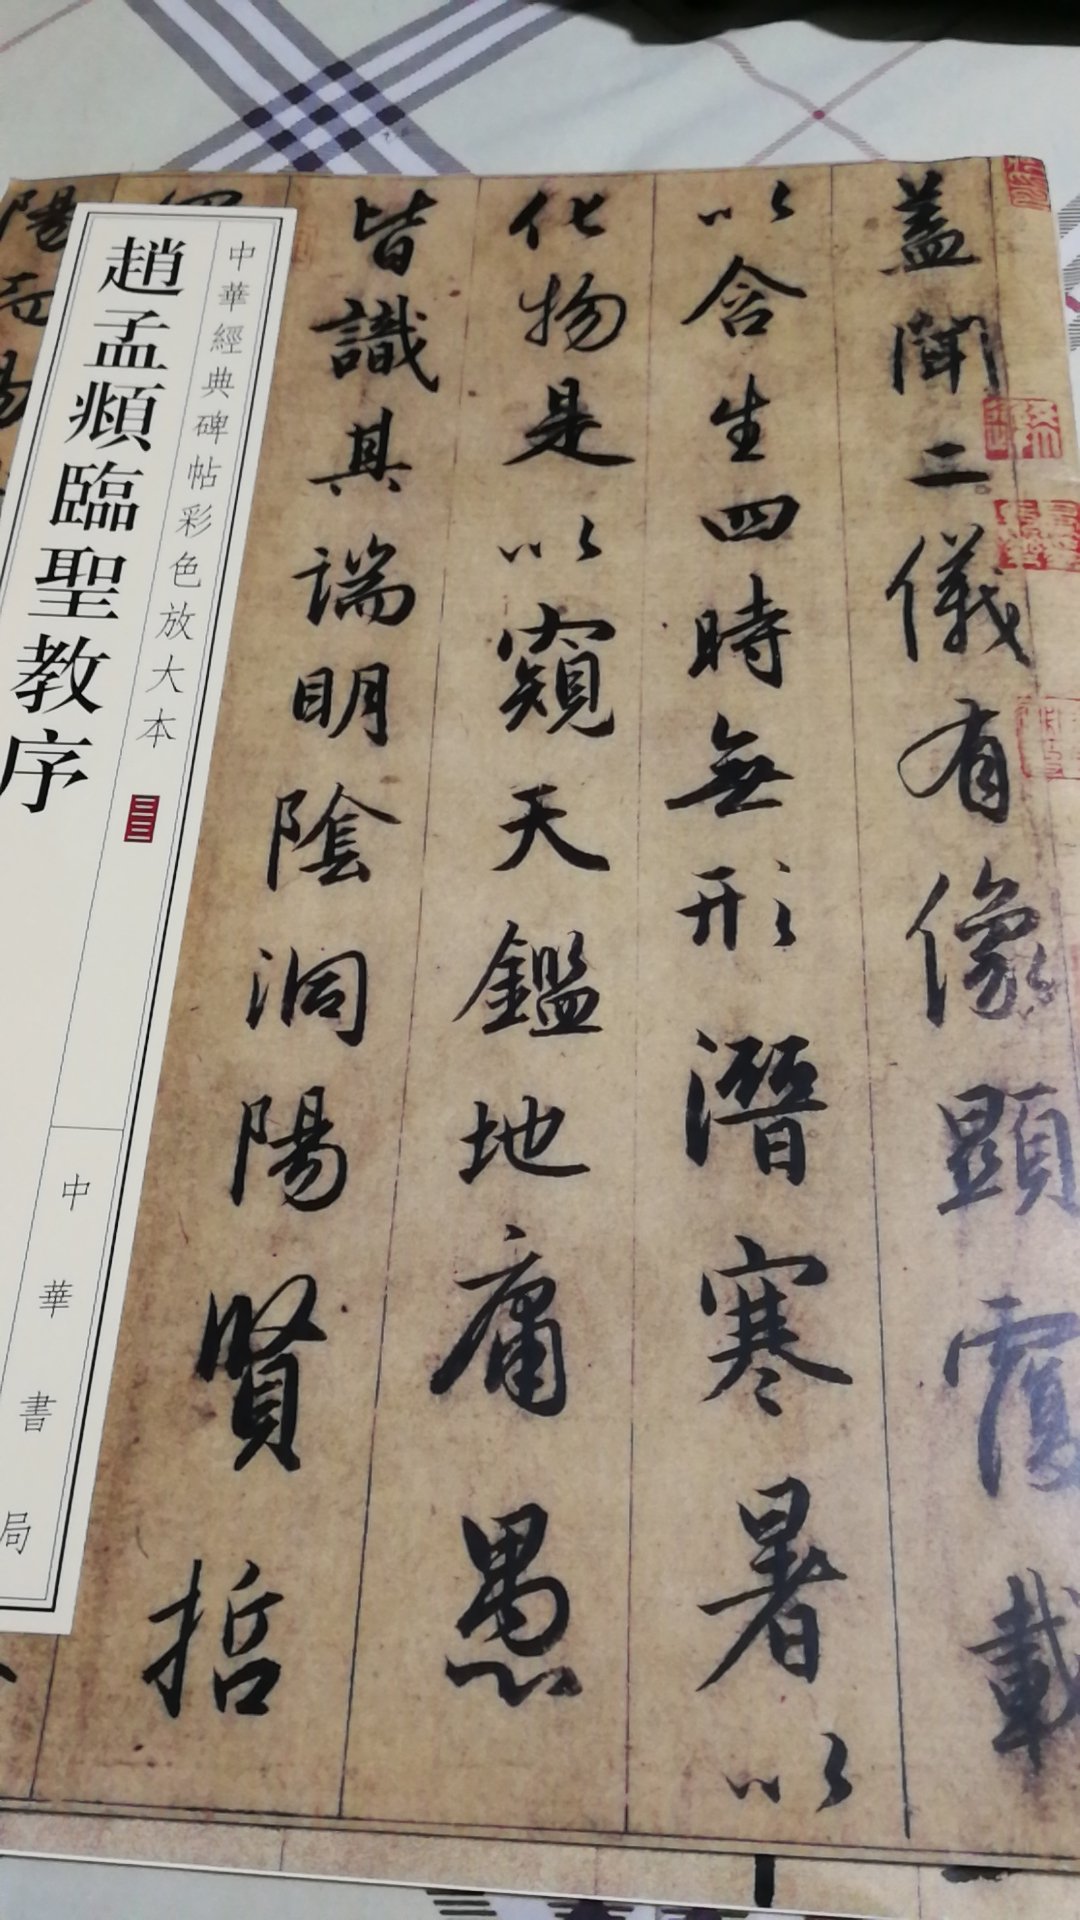 蓋聞二儀有像顯覆載
以含生四時無形潛寒暑以
化物是以窺天鑑地庸愚
皆識其端明陰洞陽賢哲
中華經典碑帖彩色放大本
中華書局
趙孟頫臨聖教序